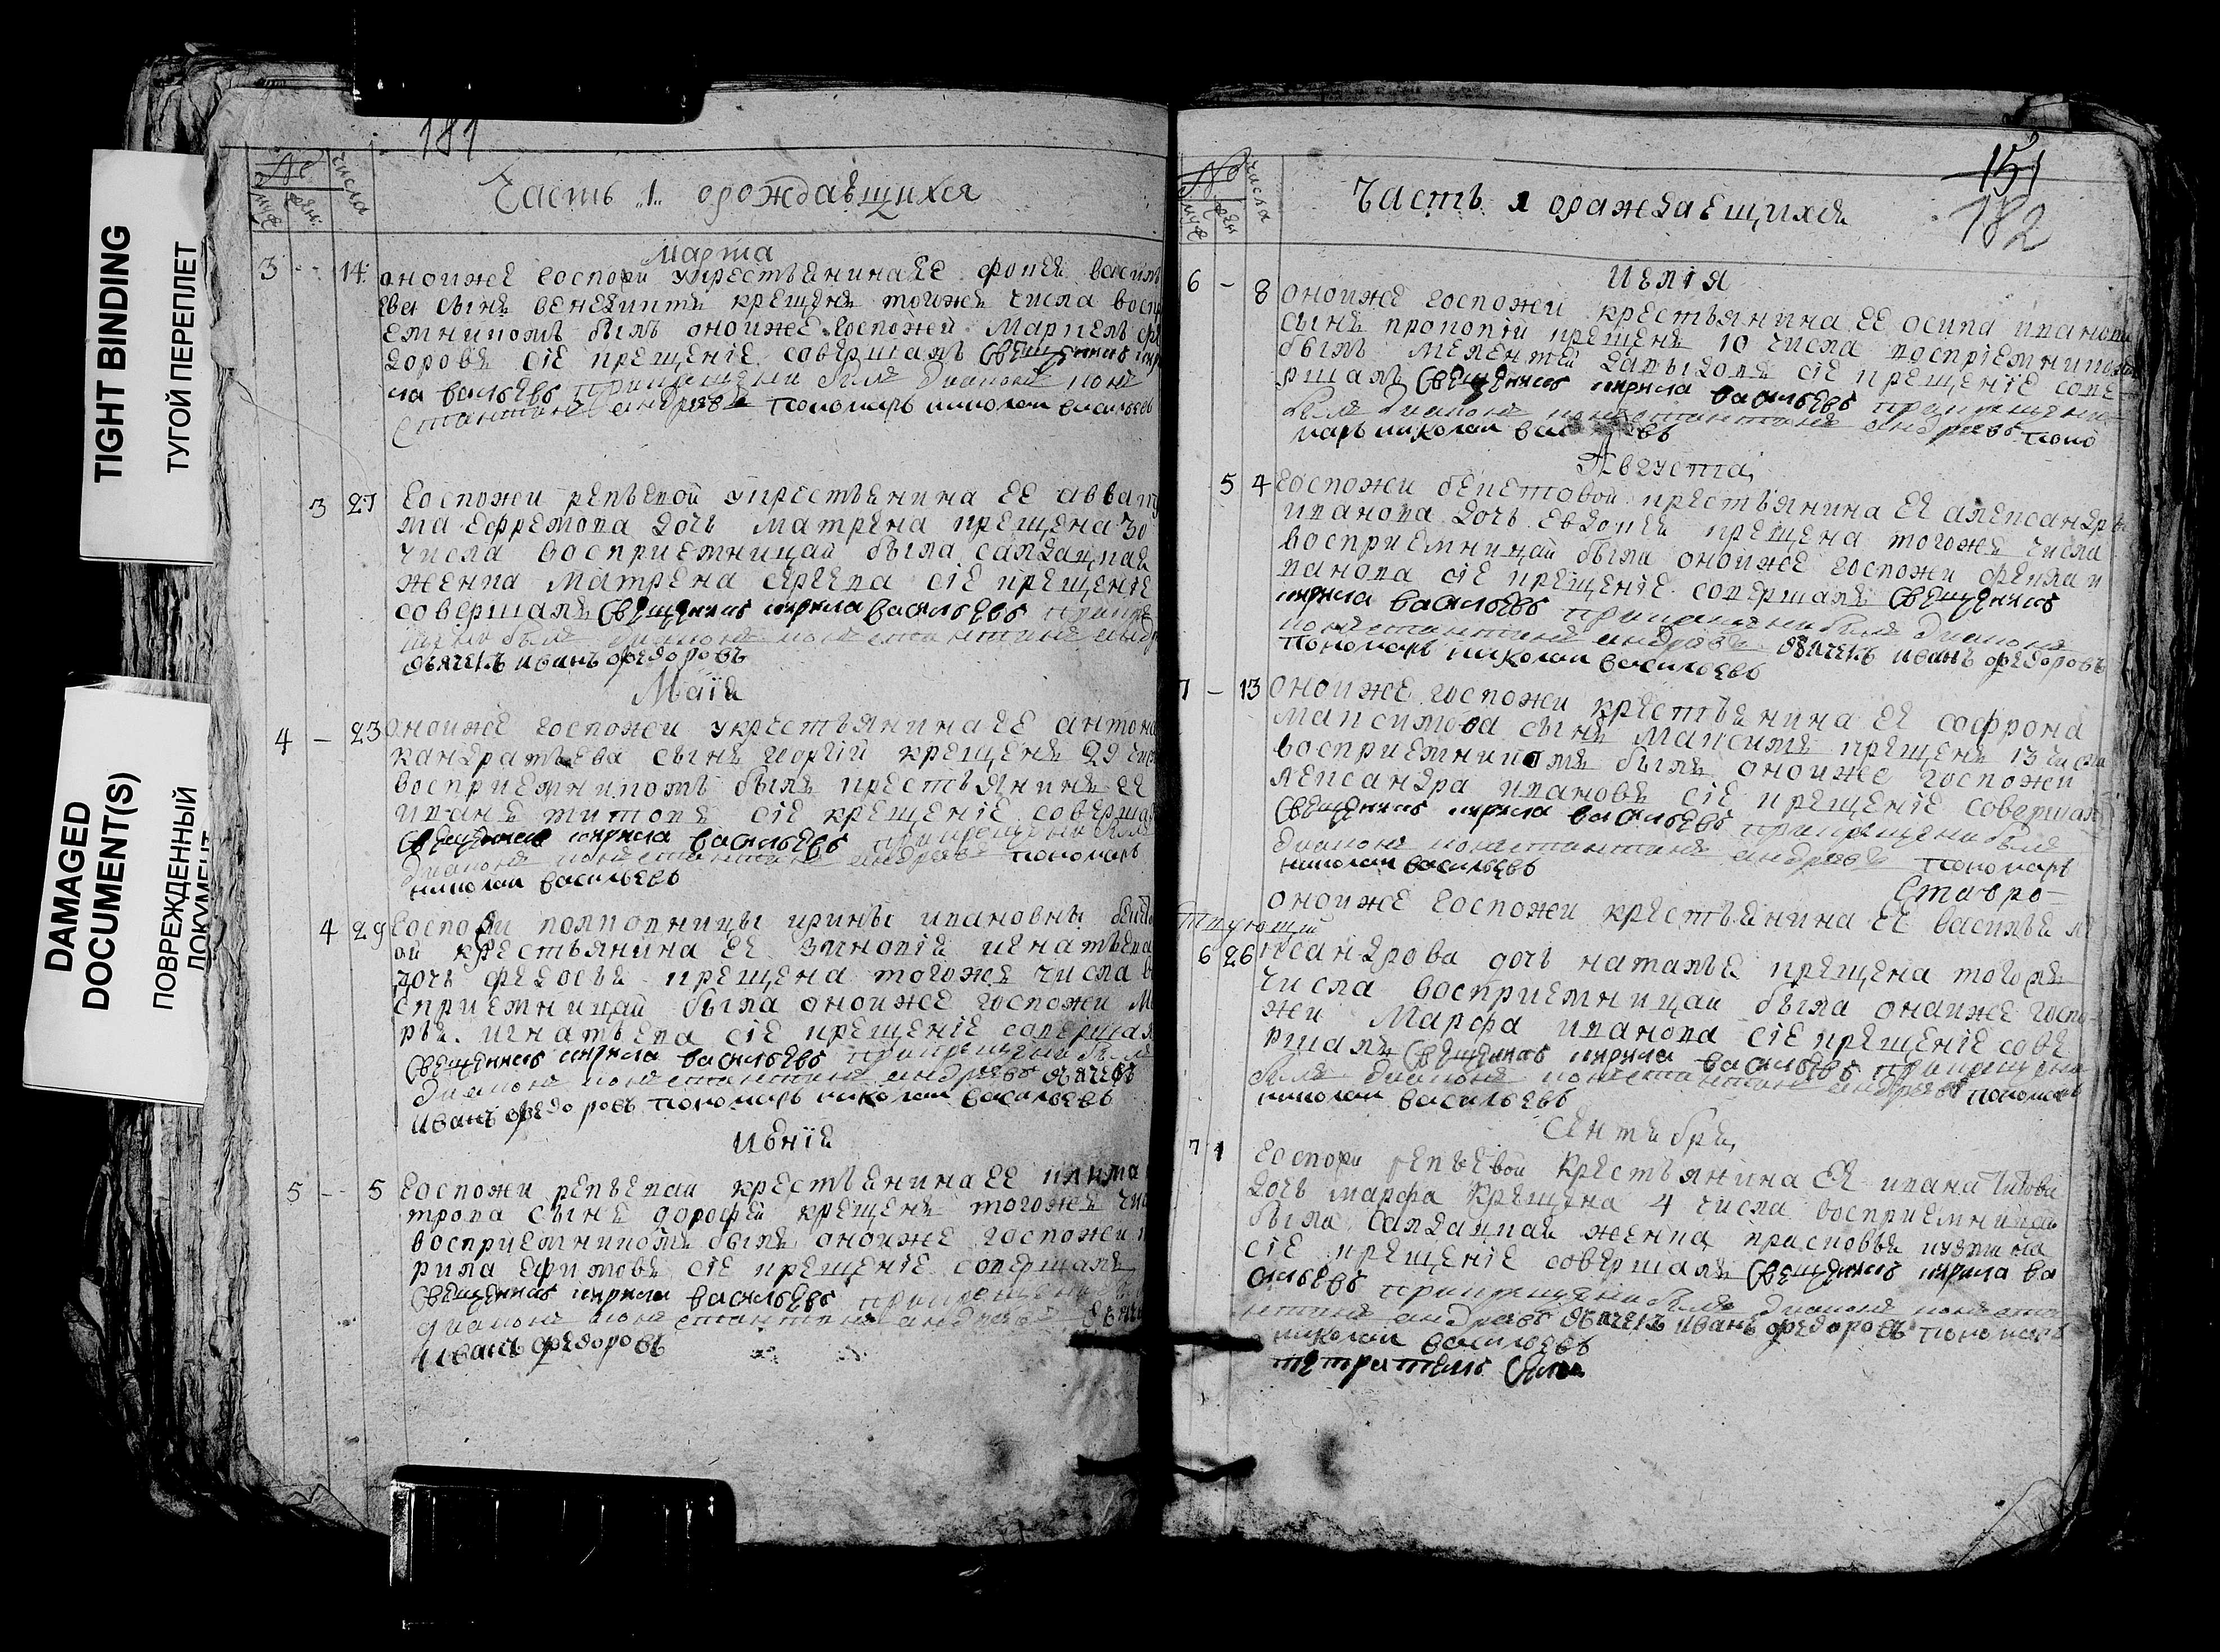 TIGHT BINDING
ТУГОЙ ПЕРЕПЛЕТ
DAMAGED
DOCUMENT(S)
ПОВРЕЖДЕННЫЙ
ДОКУМЕНТ
181
№ числа
муж жен.
Часть .1. орождавшихся
марта
3 14 оноиже госпожи укрестьянинаее фокея василь
ева сынъ венедиктъ крещенъ тогоже числа воспр
емникомъ былъ оноиже госпожи
доровъ сіе крещеніе совершалъ священникъ кири
ла васильевъ прикрещени былъ диаконъ кон
стантинъ андреевъ пономарь николаи васильевъ
3 27 госпожи репьевой укрестьянина ее авваку
ма ефремова дочь матрена крещена 30
числа восприемницай была салдацкая
женка матрена сергева сіе крещеніе
совершалъ священникъ кирила васильевъ прикре
щени былъ диаконъ константинъ андр
дьячекъ иванъ федоровъ
Маія
4 – 23 оноиже госпожи укрестьянинаее антона
кандратьева сынъ георгій крещенъ 29 числ
восприемникомъ былъ крестьянинъ ее
иванъ титовъ сіе крещеніе соверша
священникъ кирила васильевъ прикрещени былъ
диаконъ константинъ андреевъ пономарь
николаи васильевъ
4 29 госпожи полковницы ирины ивановны бекето
ои крестьянина ее зиновія игнатьева
дочь федосья крещена тогоже числа во
сприемницай была оноиже госпожи ма
рья игнатьева сіе крещеніе совершал
священникъ кирила васильевъ прикрещени былъ
диаконъ константинъ андреевъ дьячекъ
иванъ федоровъ пономарь николаи васильевъ
июнія
5 – 5 госпожи репьевай крестьянинаее
трова сынъ дорофей крещенъ тогоже чис
восприемникомъ былъ оноиже госпожи к
рила ефимовъ сіе крещеніе совершалъ
священникъ кирила васильевъ прикрещени
диаконъ константинъ андреевъ дьяче
иванъ федоровъ
151
182
№ числа
муж жен
Часть 1 ораждаещихся
июлія
6 – 8 оноиже госпожи крестьянина ее осипа иванова
сынъ прокопій крещенъ 10 числа воспріемником
былъ мелентей давыдовъ сіе крещеніе сове
ршалъ священникъ кирила васильевъ прикрещени
былъ диаконъ константинъ андреевъ поно
марь николаи васильевъ
Августа
5 4 госпожи бекетовой крестьянина ее александра
иванова дочь евдокея крещена тогоже числа
восприемницай была оноиже госпожи фекла и
ванова сіе крещеніе совершалъ священникъ
кирила васильевъ прикрещени былъ диаконъ
константинъ андреевъ дьячекъ иванъ федоровъ
пономарь николаи васильевъ
7 – 13 оноиже госпожи крестьянина ее софрона
максимова сынъ максимъ крещенъ 13 числа
восприемникомъ былъ оноиже госпожи
лександра ивановъ сіе крещеніе совершалъ
священникъ кирила васильевъ прикрещени былъ
диаконъ константинъ андреевъ пономарь
николаи васильевъ
Ставро–
оноиже госпожи крестьянина ее василья ле
6 26 ксандрова дочь наталья крещена тогоже
числа восприемницай была онаиже госпо–
жи Марфа иванова сіе крещеніе сове
ршалъ священникъ кирила васильевъ прикрещени
былъ диаконъ константинъ андреевъ пономарь
николаи васильевъ
Сентября
7 1 госпожи репьевой крестьянина ее ивана титова
дочь марфа крещена 4 числа восприемницай
была салдацкая женка прасковья
сіе крещеніе совершалъ священникъ кирила ва
сильевъ прикрещени былъ диаконъ конста
нтинъ андреевъ дьячекъ иванъ федоровъ пономарь
николаи васильевъ